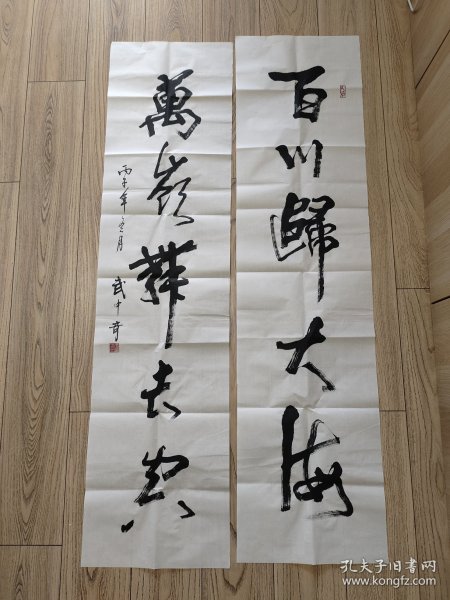 百川歸大海
萬嶺舞長空
丙子年月 武中奇
孔夫子旧书网
www.kongfz.com